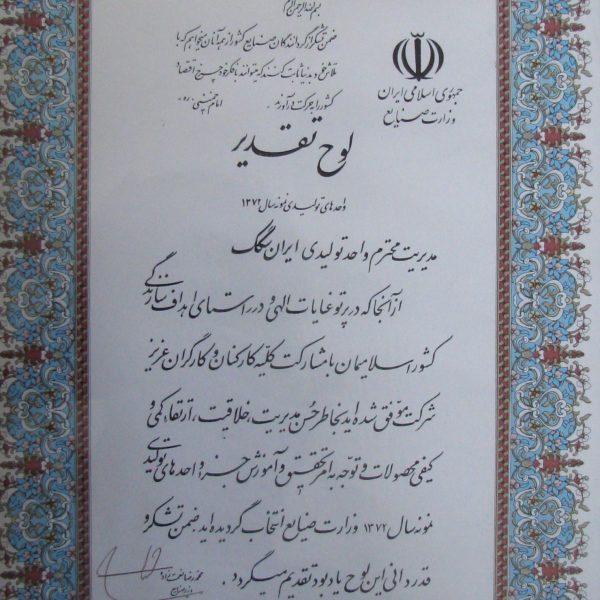 بسم الله الرحمن الرحیم
ضمن تشکر از گردانندگان صنایع کشور از همه آنان میخواهم که با
تلاش خود به دنیا ثابت کنند که میتوانند با فکر خود چرخ اقتصاد
کشور را به حرکت درآورند . امام خمینی «ره»
جمهوری اسلامی ایران
وزارت صنایع
لوح تقدیر
واحدهای تولیدی نمونه سال ۱۳۷۲
مدیریت محترم واحد تولیدی ایران سگک
از آنجا که در پرتو عنایات الهی و در راستای اهداف سازندگی
کشور اسلامیمان با مشارکت کلیه کارکنان و کارگران عزیز
شرکت موفق شده اید بخاطر حسن مدیریت ، خلاقیت ، ارتقاء کمی و
کیفی محصولات و توجه به امر تحقیق و آموزش جزء واحدهای تولیدی
نمونه سال ۱۳۷۲ وزارت صنایع انتخاب گردیده اید . ضمن تشکر و
قدردانی این لوح یادبود تقدیم میگردد .
محمدرضا نعمت زاده
وزیر صنایع